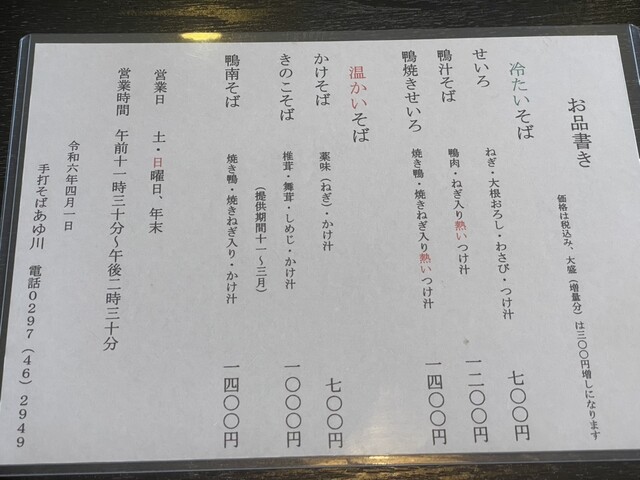 お品書き
価格は税込み、大盛(増量分)は三〇〇円増しになります
冷たいそば
せいろ ねぎ・大根おろし・わさび・つけ汁 七〇〇円
鴨汁そば 鴨肉・ねぎ入り熱いつけ汁 一二〇〇円
鴨焼きせいろ 焼き鴨・焼きねぎ入り熱いつけ汁 一四〇〇円
温かいそば
かけそば 薬味(ねぎ)・かけ汁 七〇〇円
きのこそば 椎茸・舞茸・しめじ・かけ汁 一〇〇〇円
(提供期間十一～三月)
鴨南そば 焼き鴨・焼きねぎ入り・かけ汁 一四〇〇円
営業日 土・日曜日、年末
営業時間 午前十一時三十分～午後二時三十分
令和六年四月一日
手打そばあゆ川 電話0297(46)2949